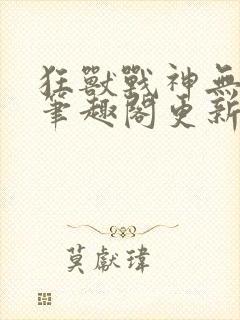 狂獸戰神無
筆趣閣更新
莫獻瑋